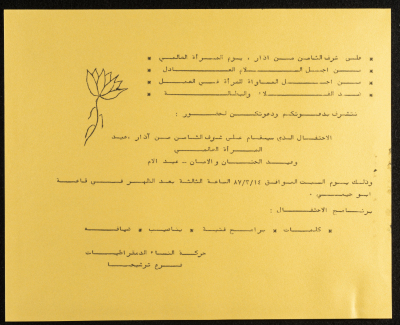 * على شرف الثامن من اذار ، يوم المرأة العالمي *
* من اجل السلام العادل *
* من اجل المساواة للمرأة في العمل *
* ضد الغلاء والبطالة *
نتشرف بدعوتكم ودعوتكن لحضور :
الاحتفال الذي سيقام على شرف الثامن من آذار ،عيد
المرأة العالمي
وعيد الحنان والامان - عيد الام
وذلك يوم السبت الموافق ٨٧/٣/١٤ الساعة الثالثة بعد الظهر في قاعة
ابو
برنامج الاحتفال :
* كلمات * برامج فنية * يناصيب * ضيافة
حركة النساء الديمقراطيات
فرع ترشيحا